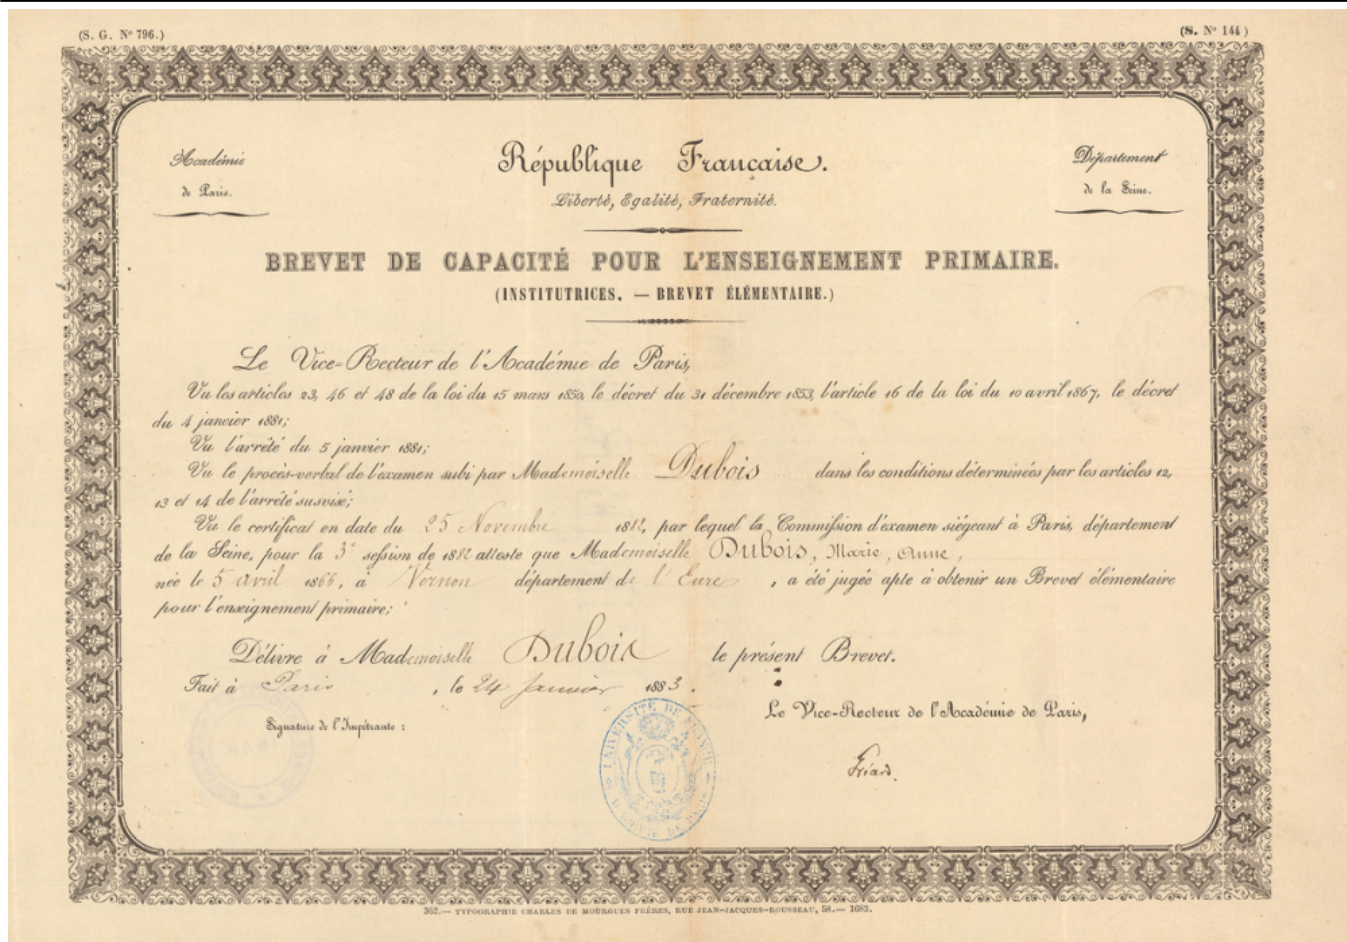 (S. G. Nº 796.)
(S. Nº 144)
Académie
de Paris.
République Française.
Liberté, Egalité, Fraternité.
Département
de la Seine.
BREVET DE CAPACITÉ POUR L'ENSEIGNEMENT PRIMAIRE.
(INSTITUTRICES. — BREVET ÉLÉMENTAIRE.)
Le Vice-Recteur de l'Académie de Paris,
Vu les articles 23, 46 et 48 de la loi du 15 mars 1850, le décret du 31 décembre 1853, l'article 16 de la loi du 10 avril 1867, le décret
du 4 janvier 1881;
Vu l'arrêté du 5 janvier 1881;
Vu le procès-verbal de l'examen subi par Mademoiselle Dubois dans les conditions déterminées par les articles 12,
13 et 14 de l'arrêté susvisé;
Vu le certificat en date du 25 Novembre 1882, par lequel la Commission d'examen siégeant à Paris, département
de la Seine, pour la 3e session de 1882 atteste que Mademoiselle Dubois, Marie, Anne,
née le 5 avril 1866, à Vernon département de l'Eure, a été jugée apte à obtenir un Brevet élémentaire
pour l'enseignement primaire;
Délivre à Mademoiselle Dubois le présent Brevet.
Fait à Paris, le 24 Janvier 1883.
Signature de l'Impétrante :
Le Vice-Recteur de l'Académie de Paris,
UNIVERSITÉ DE FRANCE
ACADÉMIE DE PARIS
362.— TYPOGRAPHIE CHARLES DE MOURGUES FRÈRES, RUE JEAN-JACQUES-ROUSSEAU, 58.— 1683.